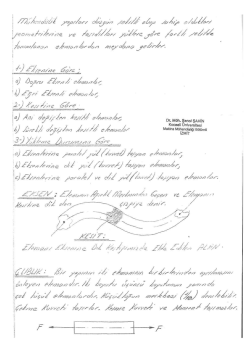 Mühendislik yapıları düzgün şekilli olup sahip oldukları
geometrilerine ve taşıdıkları yüklere göre farklı şekilde
tanımlanan elemanlardan meydana gelirler.
1) Eksenine Göre:
a) Doğru Eksenli elemanlar,
b) Eğri Eksenli elemanlar,
2) Kesitine Göre
a) Ani değişken kesitli elemanlar,
b) Sürekli değişken kesitli elemanlar
3) Yükleme Durumuna Göre
a) Eksenlerine paralel yük (kuvvet) taşıyan elemanlar,
b) Eksenlerine dik yük (kuvvet) taşıyan elemanlar,
c) Eksenlerine paralel ve dik yük (kuvvet) taşıyan elemanlar.
Dr. Müh. Şenol ŞAHİN
Kocaeli Üniversitesi
Makina Mühendisliği Bölümü
İZMİT
EKSEN: Elemanın Ağırlık Merkezinden Geçen ve Elemanın
Kesitine dik olan çizgiye denir.
KESİT:
Elemanın Eksenine Dik Kesilmesiyle Elde Edilen ALAN.
ÇUBUK: Bir yapının iki elemanının birbirlerinden ayrılmasını
önleyen elemanlardır. İki boyutu üçüncü boyutunun yanında
çok küçük elemanlardır.
Çekme Kuvveti taşırlar. Kesme Kuvveti ve Moment taşımazlar.
F F